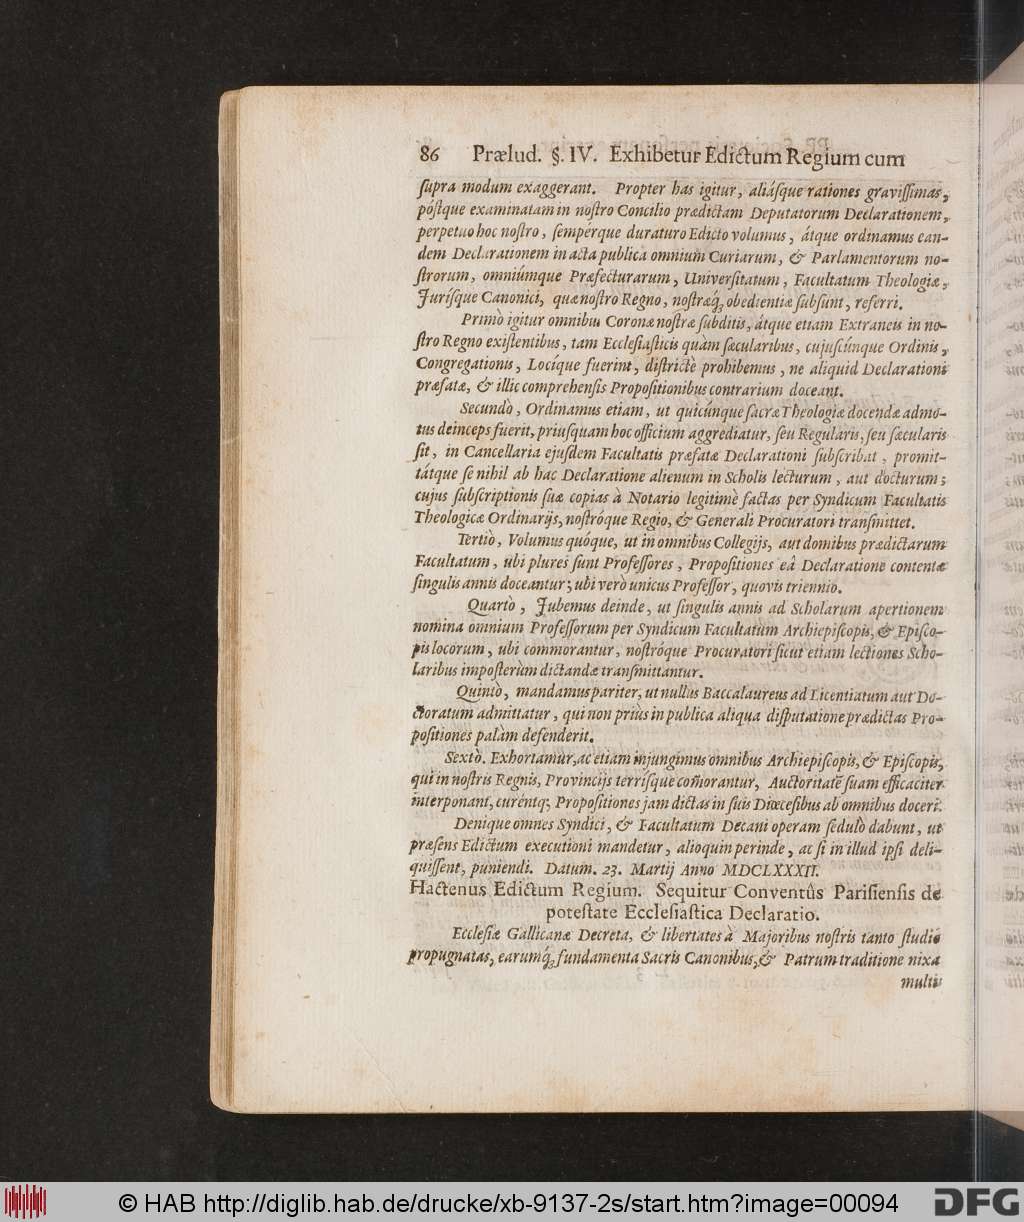 86 Prælud. §. IV. Exhibetur Edictum Regium cum
ſupra modum exaggerant. Propter has igitur, aliáſque rationes graviſſimas,
póſtque examinatam in noſtro Concilio prædictam Deputatorum Declarationem,
perpetuo hoc noſtro, ſemperque duraturo Edicto volumus, átque ordinamus ean-
dem Declarationem in acta publica omnium Curiarum, & Parlamentorum no-
ſtrorum, omniúmque Præfecturarum, Univerſitatum, Facultatum Theologiæ,
Juriſque Canonici, quæ noſtro Regno, noſtræq́; obedientiæ ſubſunt, referri.
Primò igitur omnibus Coronæ noſtræ ſubditis, átque etiam Extraneis in no-
ſtro Regno exiſtentibus, tam Eccleſiaſticis quàm ſæcularibus, cujuſcúnque Ordinis,
Congregationis, Locíque fuerint, diſtrictè prohibemus, ne aliquid Declarationi
præfatæ, & illic comprehenſis Propoſitionibus contrarium doceant.
Secundò, Ordinamus etiam, ut quicúnque ſacræ Theologiæ docendæ admo-
tus deinceps fuerit, priuſquam hoc officium aggrediatur, ſeu Regularis, ſeu ſæcularis
ſit, in Cancellaria ejuſdem Facultatis præfatæ Declarationi ſubſcribat, promit-
tátque ſe nihil ab hac Declaratione alienum in Scholis lecturum, aut docturum;
cujus ſubſcriptionis ſuæ copias à Notario legitimè factas per Syndicum Facultatis
Theologicæ Ordinarijs, noſtróque Regio, & Generali Procuratori tranſmittet.
Tertiò, Volumus quóque, ut in omnibus Collegijs, aut domibus prædictarum
Facultatum, ubi plures ſunt Profeſſores, Propoſitiones eâ Declaratione contentæ
ſingulis annis doceantur; ubi verò unicus Profeſſor, quovis triennio.
Quartò, Jubemus deinde, ut ſingulis annis ad Scholarum apertionem
nomina omnium Profeſſorum per Syndicum Facultatum Archiepiſcopis, & Epiſco-
pis locorum, ubi commorantur, noſtróque Procuratori ſicut etiam lectiones Scho-
laribus impoſterùm dictandæ tranſmittantur.
Quintò, mandamus pariter, ut nullus Baccalaureus ad Licentiatum aut Do-
ctoratum admittatur, qui non priùs in publica aliqua diſputatione prædictas Pro-
poſitiones palàm defenderit.
Sextò. Exhortamur, ac etiam injungimus omnibus Archiepiſcopis, & Epiſcopis,
qui in noſtris Regnis, Provincijs terriſque com̃orantur, Auctoritatẽ ſuam efficaciter
interponant, curentq; Propoſitiones jam dictas in ſuis Diœceſibus ab omnibus doceri.
Denique omnes Syndici, & Facultatum Decani operam ſedulò dabunt, ut
præſens Edictum executioni mandetur, alioquin perinde, ac ſi in illud ipſi deli-
quiſſent, puniendi. Datum. 23. Martij Anno MDCLXXXII.
Hactenus Edictum Regium. Sequitur Conventûs Pariſienſis de
poteſtate Eccleſiaſtica Declaratio.
Eccleſiæ Gallicanæ Decreta, & libertates à Majoribus noſtris tanto ſtudio
propugnatas, earumq́; fundamenta Sacris Canonibus, & Patrum traditione nixa
multi
© HAB http://diglib.hab.de/drucke/xb-9137-2s/start.htm?image=00094
DFG